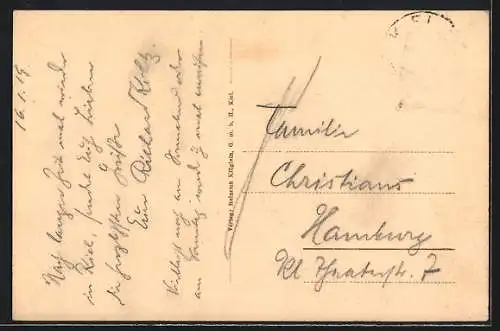 16.1.19
Nach langer Zeit mal wieder
in Kiel, sendet Euch Lieben
die herzlichsten Grüße
Euer Richard Kloltz.
Vielleicht noch am Sonnabend oder
am Sonntag mal
Verlag: Heinrich Killglein, G. m. b. H., Kiel.
Familie
Christians
Hamburg
Kl. Theaterstr. 7